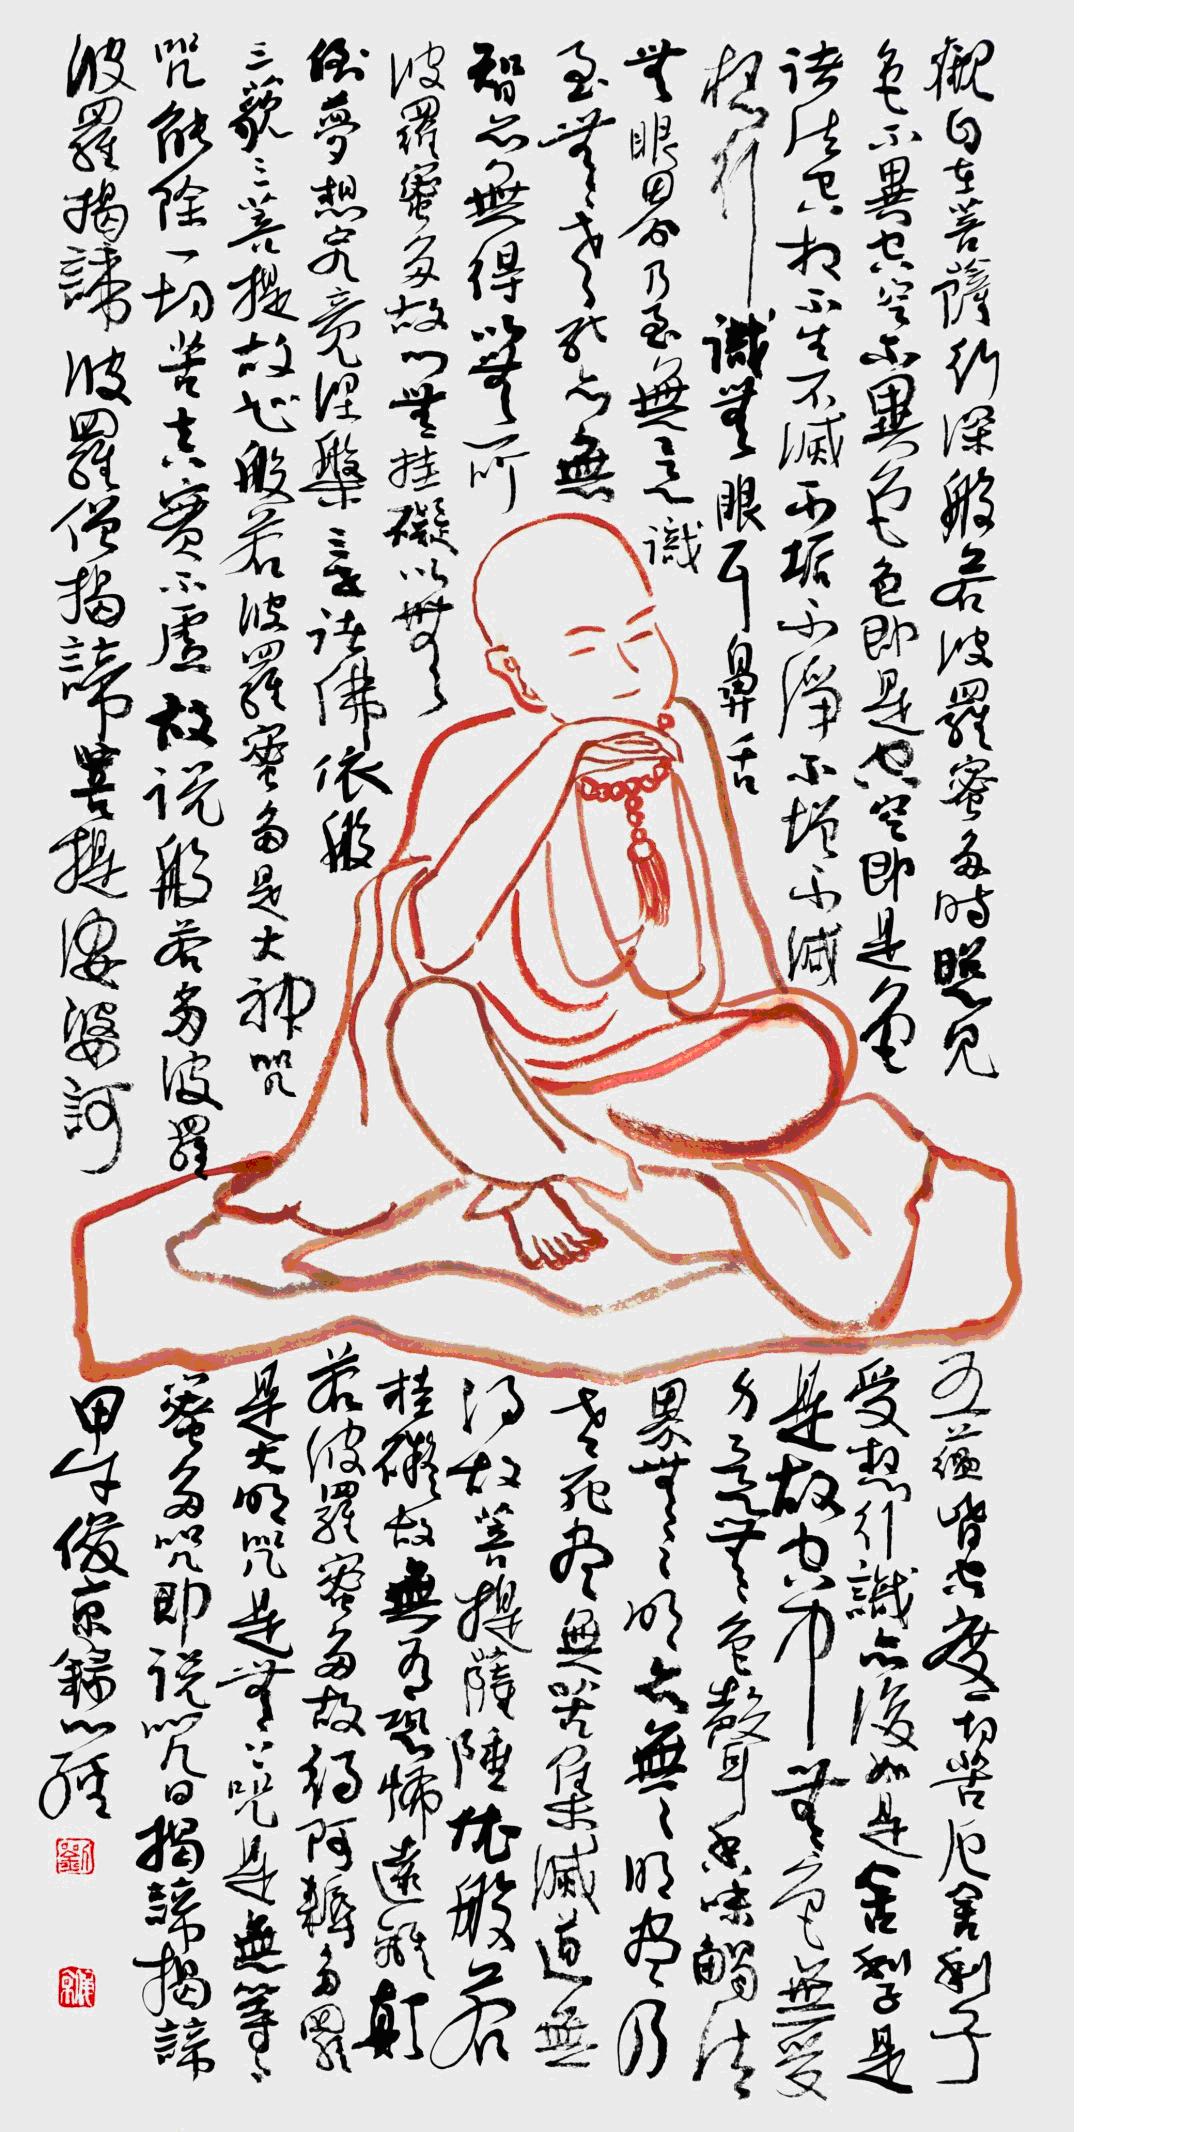 觀自在菩薩行深般若波羅蜜多時照見
五蘊皆空度一切苦厄舍利子
色不異空空不異色色即是空空即是色
受想行識亦復如是舍利子是
諸法空相不生不滅不垢不淨不增不減
是故空中無色無受
想行識無眼耳鼻舌
身意無色聲香味觸法
無眼界乃至無意識
界無無明亦無無明盡乃
至無老死亦無
老死盡無苦集滅道無
智亦無得以無所
得故菩提薩埵依般若
波羅蜜多故心無挂礙以無
挂礙故無有恐怖遠離顛
倒夢想究竟涅槃三世諸佛依般
若波羅蜜多故得阿耨多羅
三藐三菩提故知般若波羅蜜多是大神咒
是大明咒是無上咒是無等等
咒能除一切苦真實不虛故説般若多波羅
蜜多咒即説咒曰揭諦揭諦
波羅揭諦波羅僧揭諦菩提娑婆訶
甲午俊京錄心經
劉